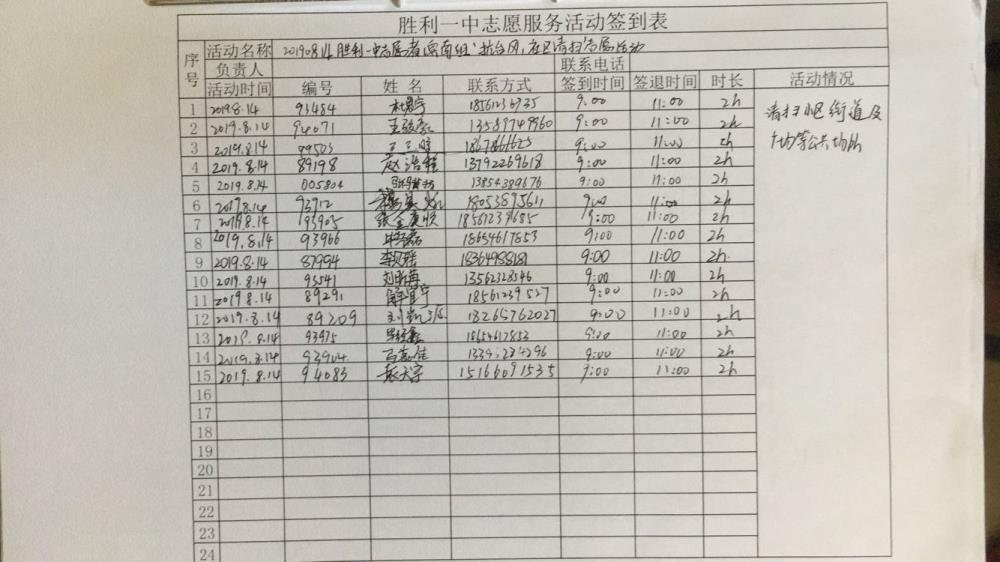 胜利一中志愿服务活动签到表
序号 活动名称 20190814胜利一中志愿者 抗台风, 社区清扫 活动
负责人 联系电话
活动时间 编号 姓名 联系方式 签到时间 签退时间 时长 活动情况
1 2019.8.14 93484 18561236735 9:00 11:00 2h 清扫小区街道及
2 2019.8.14 94071 13589749960 9:00 11:00 2h 广场等公共场所
3 2019.8.14 99503 9:00 11:00 2h
4 2019.8.14 89198 赵浩程 13792269618 9:00 11:00 2h
5 2019.8.14 005804 13854389676 9:00 11:00 2h
6 2019.8.14 93912 18053895611 9:00 11:00 2h
7 2019.8.14 93905 18561239685 9:00 11:00 2h
8 2019.8.14 93966 18654617853 9:00 11:00 2h
9 2019.8.14 87994 18364988181 9:00 11:00 2h
10 2019.8.14 93541 13562328346 9:00 11:00 2h
11 2019.8.14 89291 解宜宁 18561239527 9:00 11:00 2h
12 2019.8.14 89209 18265762027 9:00 11:00 2h
13 2019.8.14 93975 18654617853 9:00 11:00 2h
14 2019.8.14 93904 9:00 11:00 2h
15 2019.8.14 94083 张天宇 15166091535 9:00 11:00 2h
16
17
18
19
20
21
22
23
24